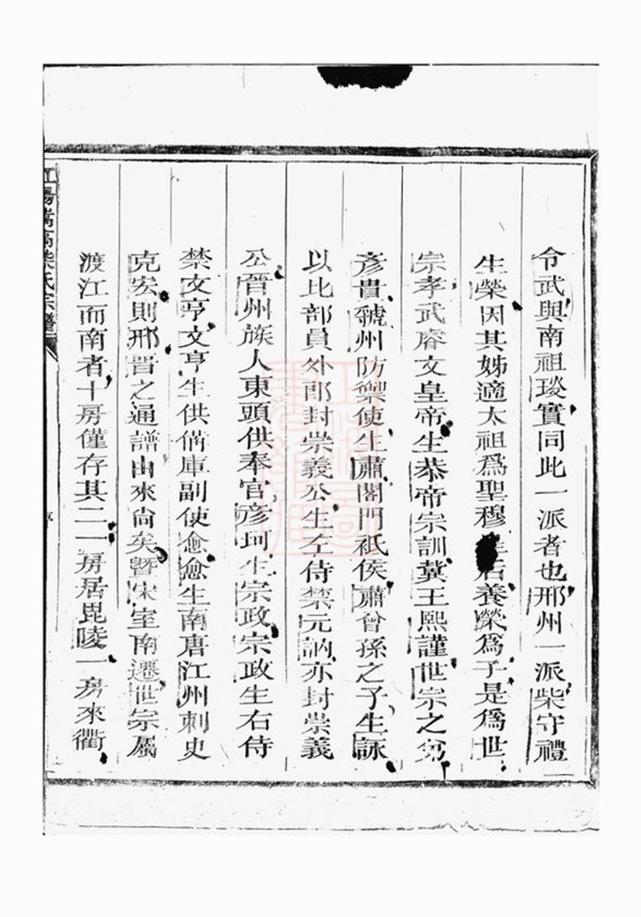 令武與南祖琰實同此一派者也邢州一派柴守禮
生榮因其姊適太祖爲聖穆皇后養榮爲子是爲世
宗孝武睿文皇帝生恭帝宗訓冀王熙謹世宗之
彥貴虢州防禦使生肅閣門祇侯肅曾孫之子生詠
以比部員外郎封崇義公生左侍禁元訥亦封崇義
公晉州族人東頭供奉官彥珂生宗政宗政生右侍
禁文亨文亨生供備庫副使愈愈生南唐江州刺史
克宏則邢晋之通譜由來尚矣曁宋室南遷世宗屬
渡江而南者十房僅存其二一房居毘陵一房來衢
江陽嵩高柴氏宗譜